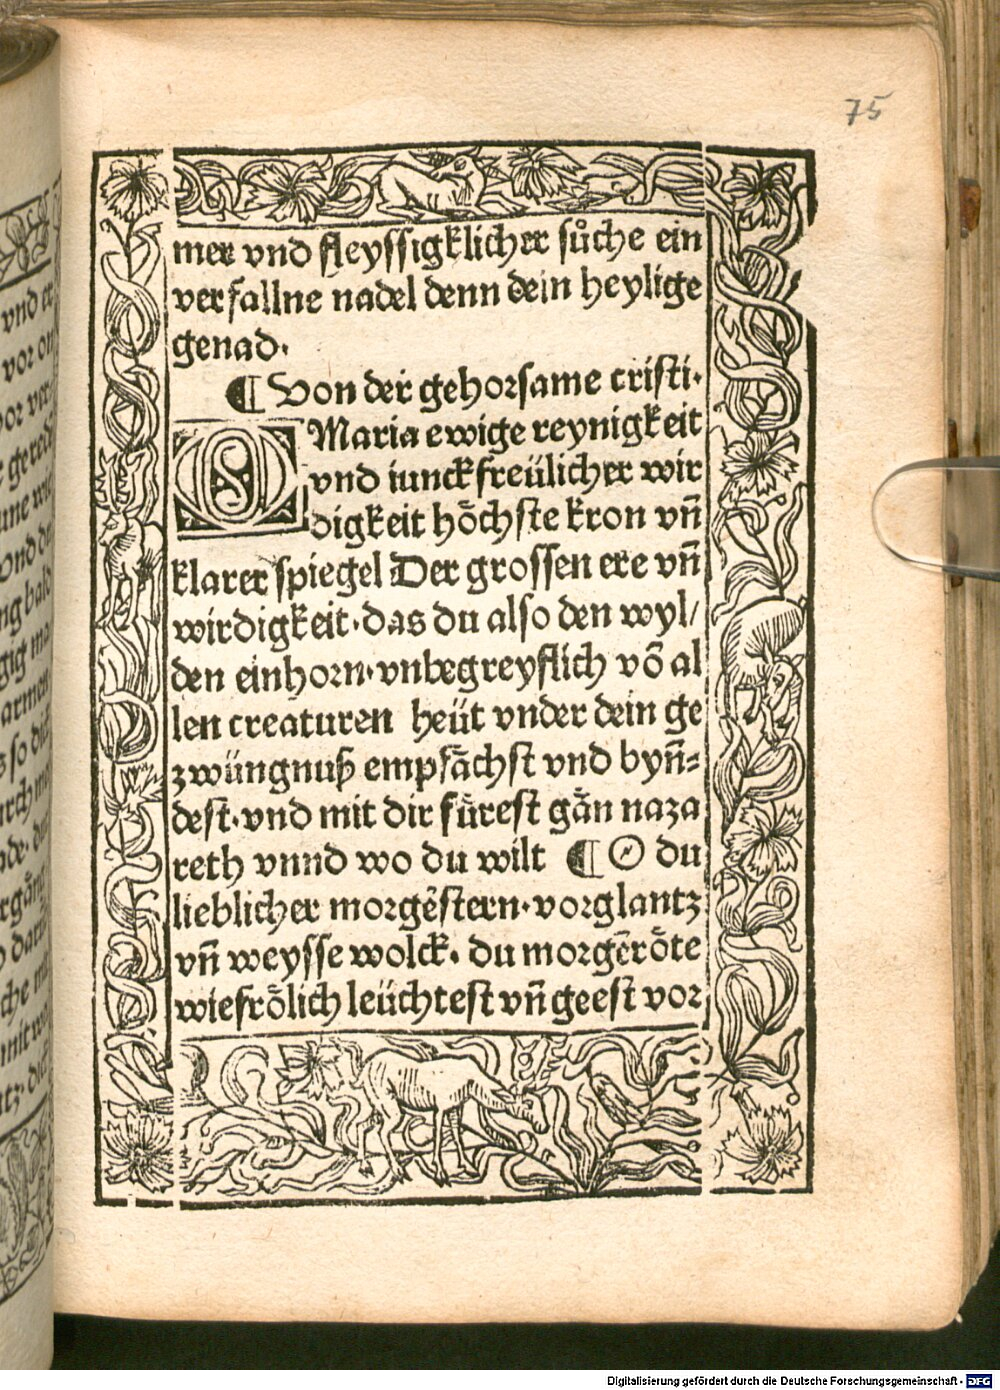 75
mer vnd fleyssigklicher sůche ein
verfallne nadel denn dein heylige
genad.
¶ Von der gehorsame cristi.
O Maria ewige reynigkeit
vnd iunckfreülicher wir
digkeit hȍchste kron vñ
klarer spiegel Der grossen ere vñ
wirdigkeit·das du also den wyl/
den einhorn·vnbegreyflich võ al
len creaturen heüt vnder dein ge
zwüngnuß empfȁchst vnd byñ⸗
dest·vnd mit dir fürest gȁn naza
reth vnnd wo du wilt ¶ O du
lieblicher morgẽstern·vorglantz
vñ weysse wolck. du morgẽrȍte
wiefrȍlich leüchtest vñ geest vor
Digitalisierung gefördert durch die Deutsche Forschungsgemeinschaft - DFG